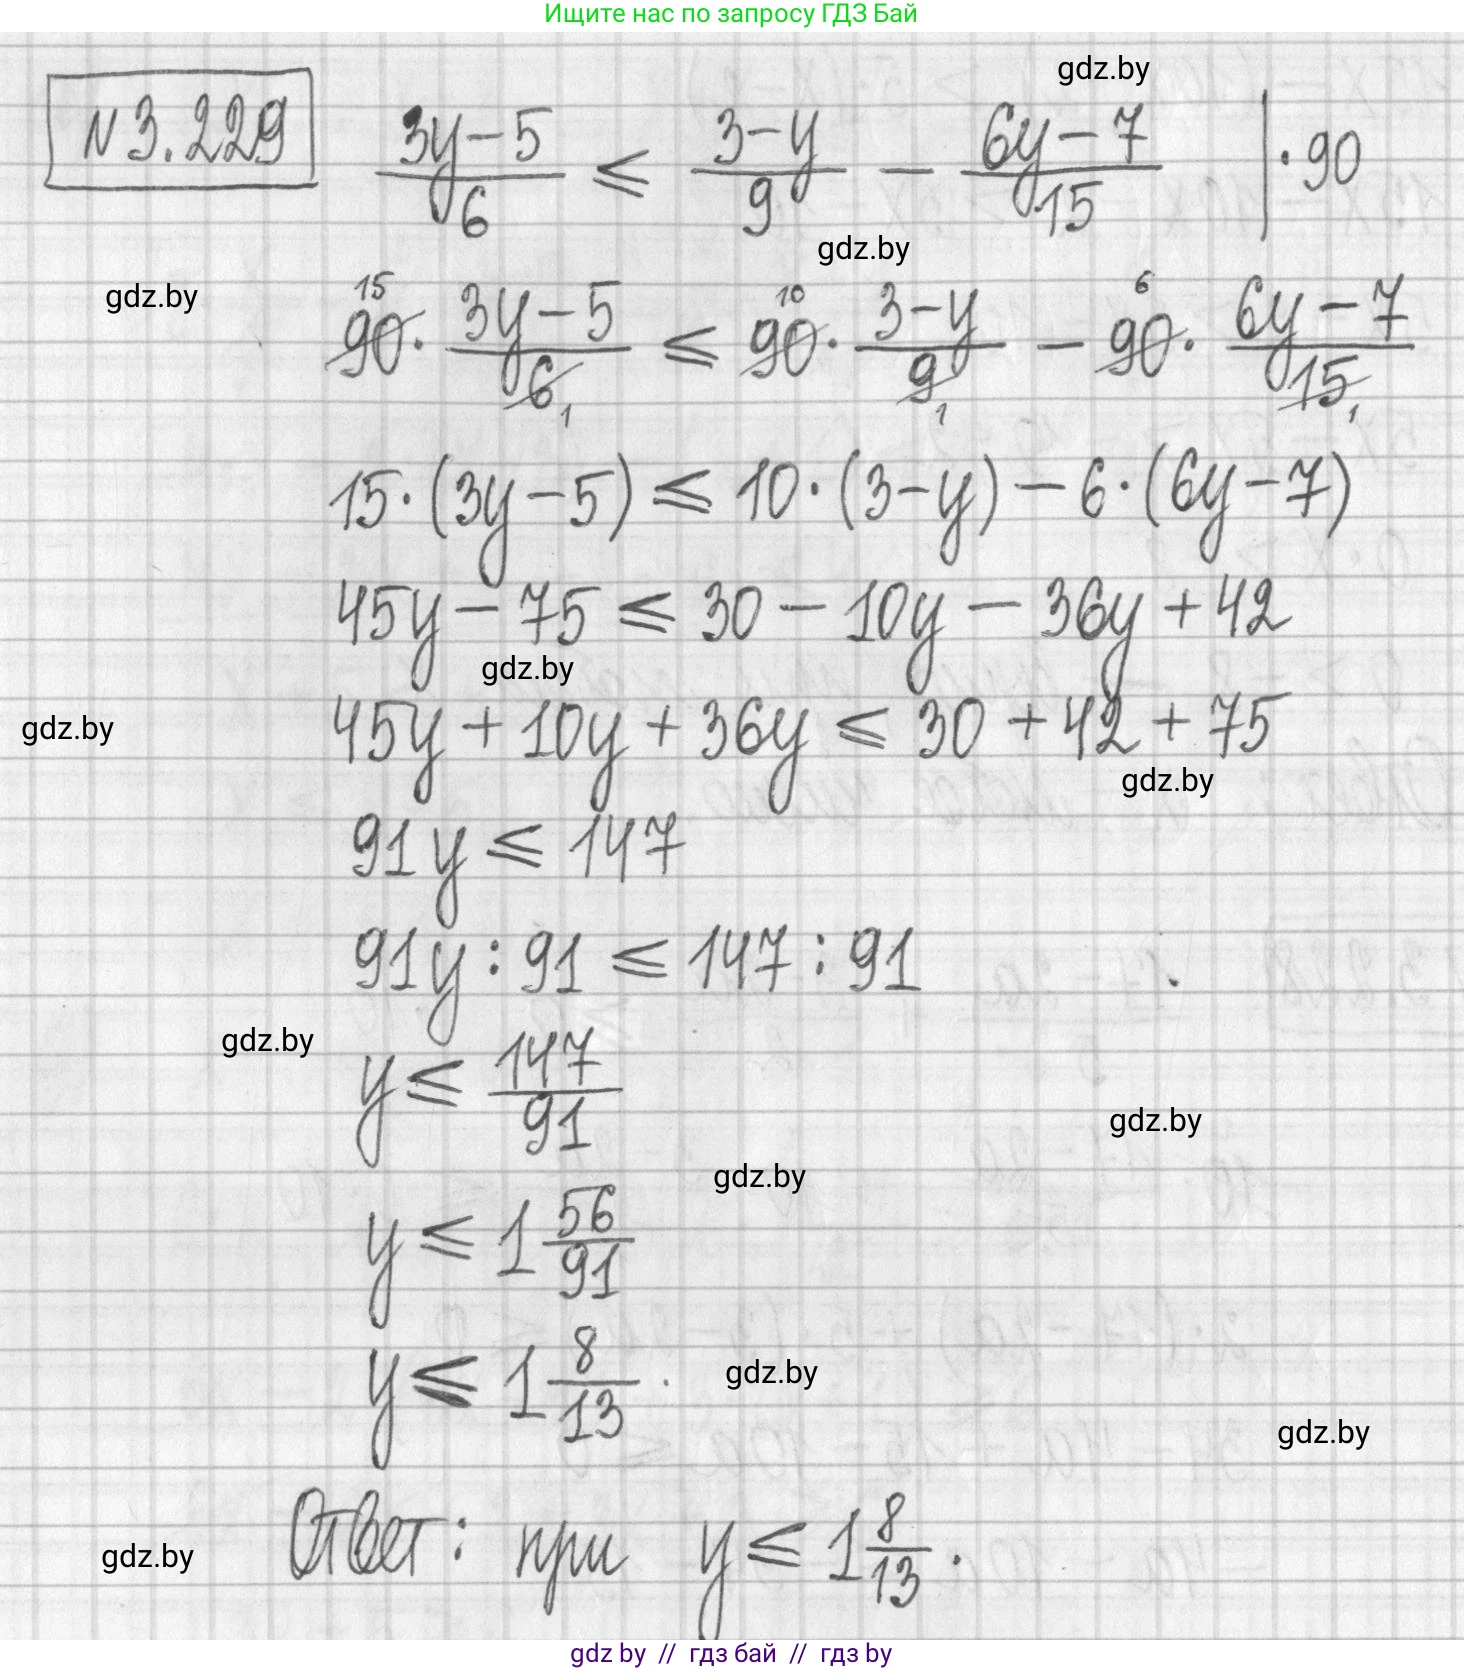 Ищите нас по запросу ГДЗ Бай
gdz.by
№3.229 (3y-5)/6 ⩽ (3-y)/9 - (6y-7)/15 |·90
gdz.by
gdz.by
90¹⁵·(3y-5)/6₁ ⩽ 90¹⁰·(3-y)/9₁ - 90⁶·(6y-7)/15₁
15·(3y-5) ⩽ 10·(3-y) - 6·(6y-7)
45y - 75 ⩽ 30 - 10y - 36y + 42
gdz.by
45y + 10y + 36y ⩽ 30 + 42 + 75
gdz.by
gdz.by
91y ⩽ 147
91y : 91 ⩽ 147 : 91
gdz.by
y ⩽ 147/91
gdz.by
gdz.by
y ⩽ 1 56/91
y ⩽ 1 8/13.
gdz.by
gdz.by
Ответ: при y ⩽ 1 8/13.
gdz.by
gdz by // гдз бай // gdz by